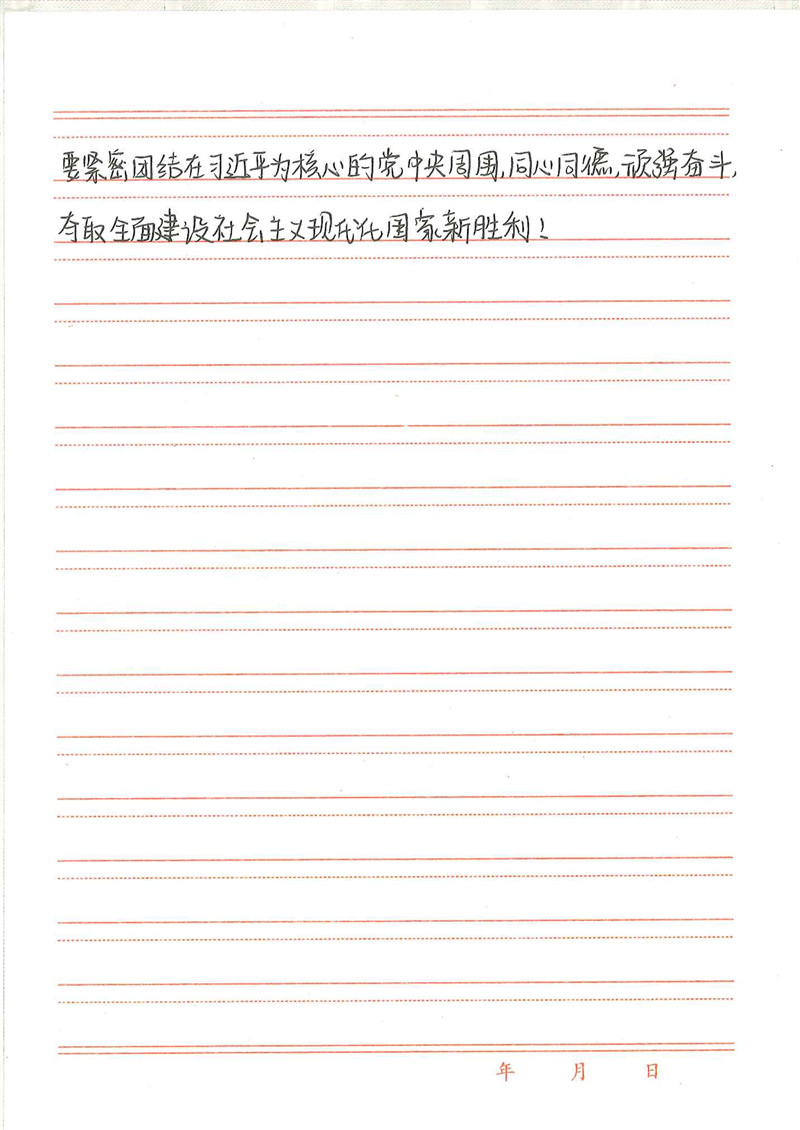 要紧密团结在习近平为核心的党中央周围,同心同德,顽强奋斗,
夺取全面建设社会主义现代化国家新胜利!
年 月 日